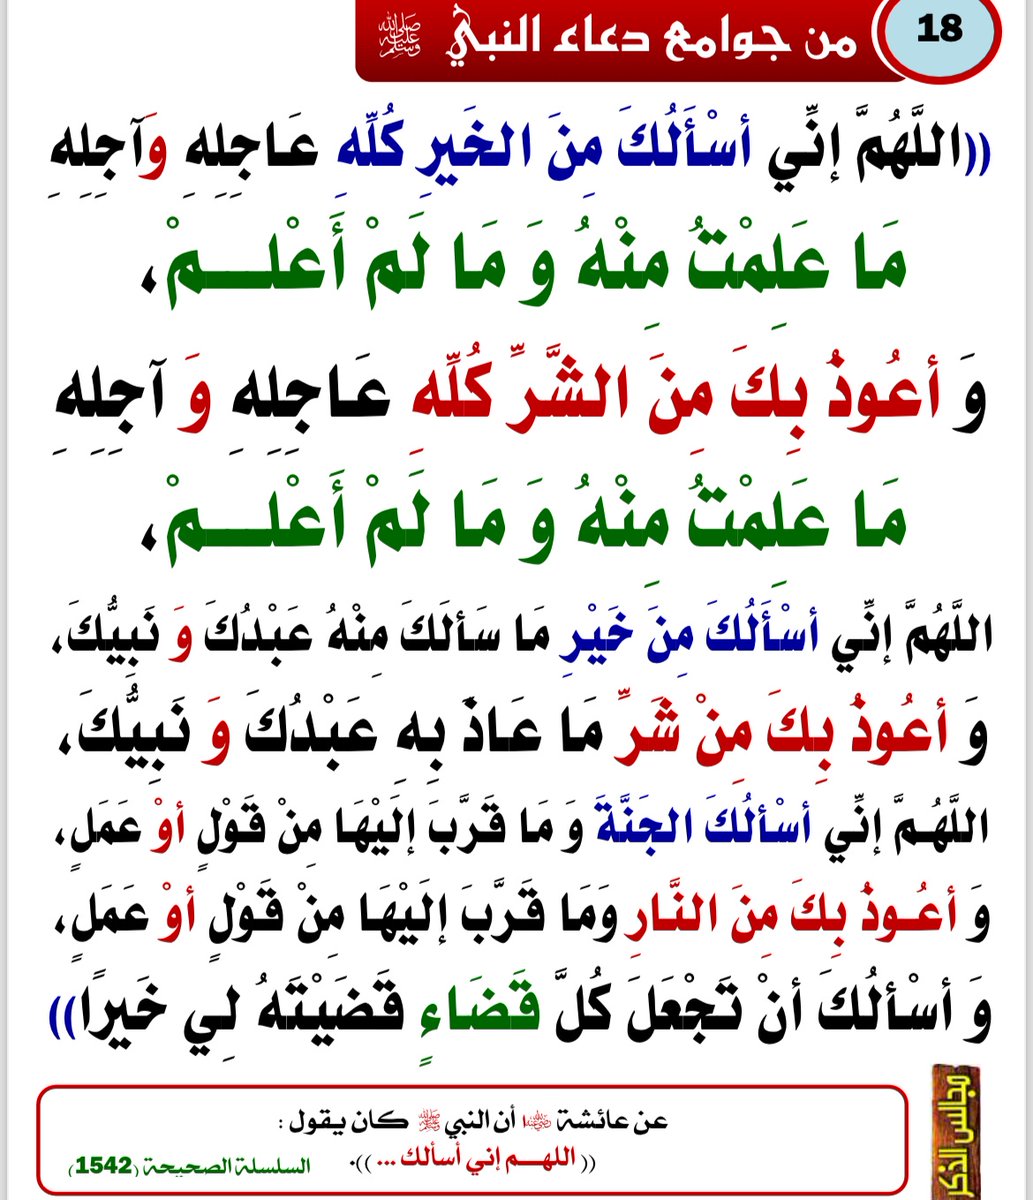 18
من جوامع دعاء النبي ﷺ
((اللَّهُمَّ إنِّي أسْأَلُكَ مِنَ الخَيرِ كُلِّهِ عَاجِلِهِ وَآجِلِهِ
مَا عَلِمْتُ مِنْهُ وَ مَا لَمْ أَعْلـــمْ،
وَ أعُوذُ بِكَ مِنَ الشَّرِّ كُلِّهِ عَاجِلِهِ وَ آجِلِهِ
مَا عَلِمْتُ مِنْهُ وَ مَا لَمْ أَعْلـــمْ،
اللَّهُمَّ إنِّي أسْأَلُكَ مِنَ خَيْرِ مَا سَألَكَ مِنْهُ عَبْدُكَ وَ نَبِيُّكَ،
وَ أعُوذُ بِكَ مِنْ شَرِّ مَا عَاذَ بِهِ عَبْدُكَ وَ نَبِيُّكَ،
اللَّهُـمَّ إنِّي أسْألُكَ الجَنَّةَ وَ مَا قَرَّبَ إلَيْهَا مِنْ قَوْلٍ أوْ عَمَلٍ،
وَ أعُـوذُ بِكَ مِنَ النَّارِ وَمَا قَرَّبَ إلَيْهَا مِنْ قَوْلٍ أوْ عَمَلٍ،
وَ أسْألُكَ أنْ تَجْعَلَ كُلَّ قَضَاءٍ قَضَيْتَهُ لِي خَيرًا))
مجالس الذكر
عن عائشة رضي الله عنها أن النبي ﷺ كان يقول :
(( اللهـــم إني أسألك ... )).
السلسلة الصحيحة (1542)